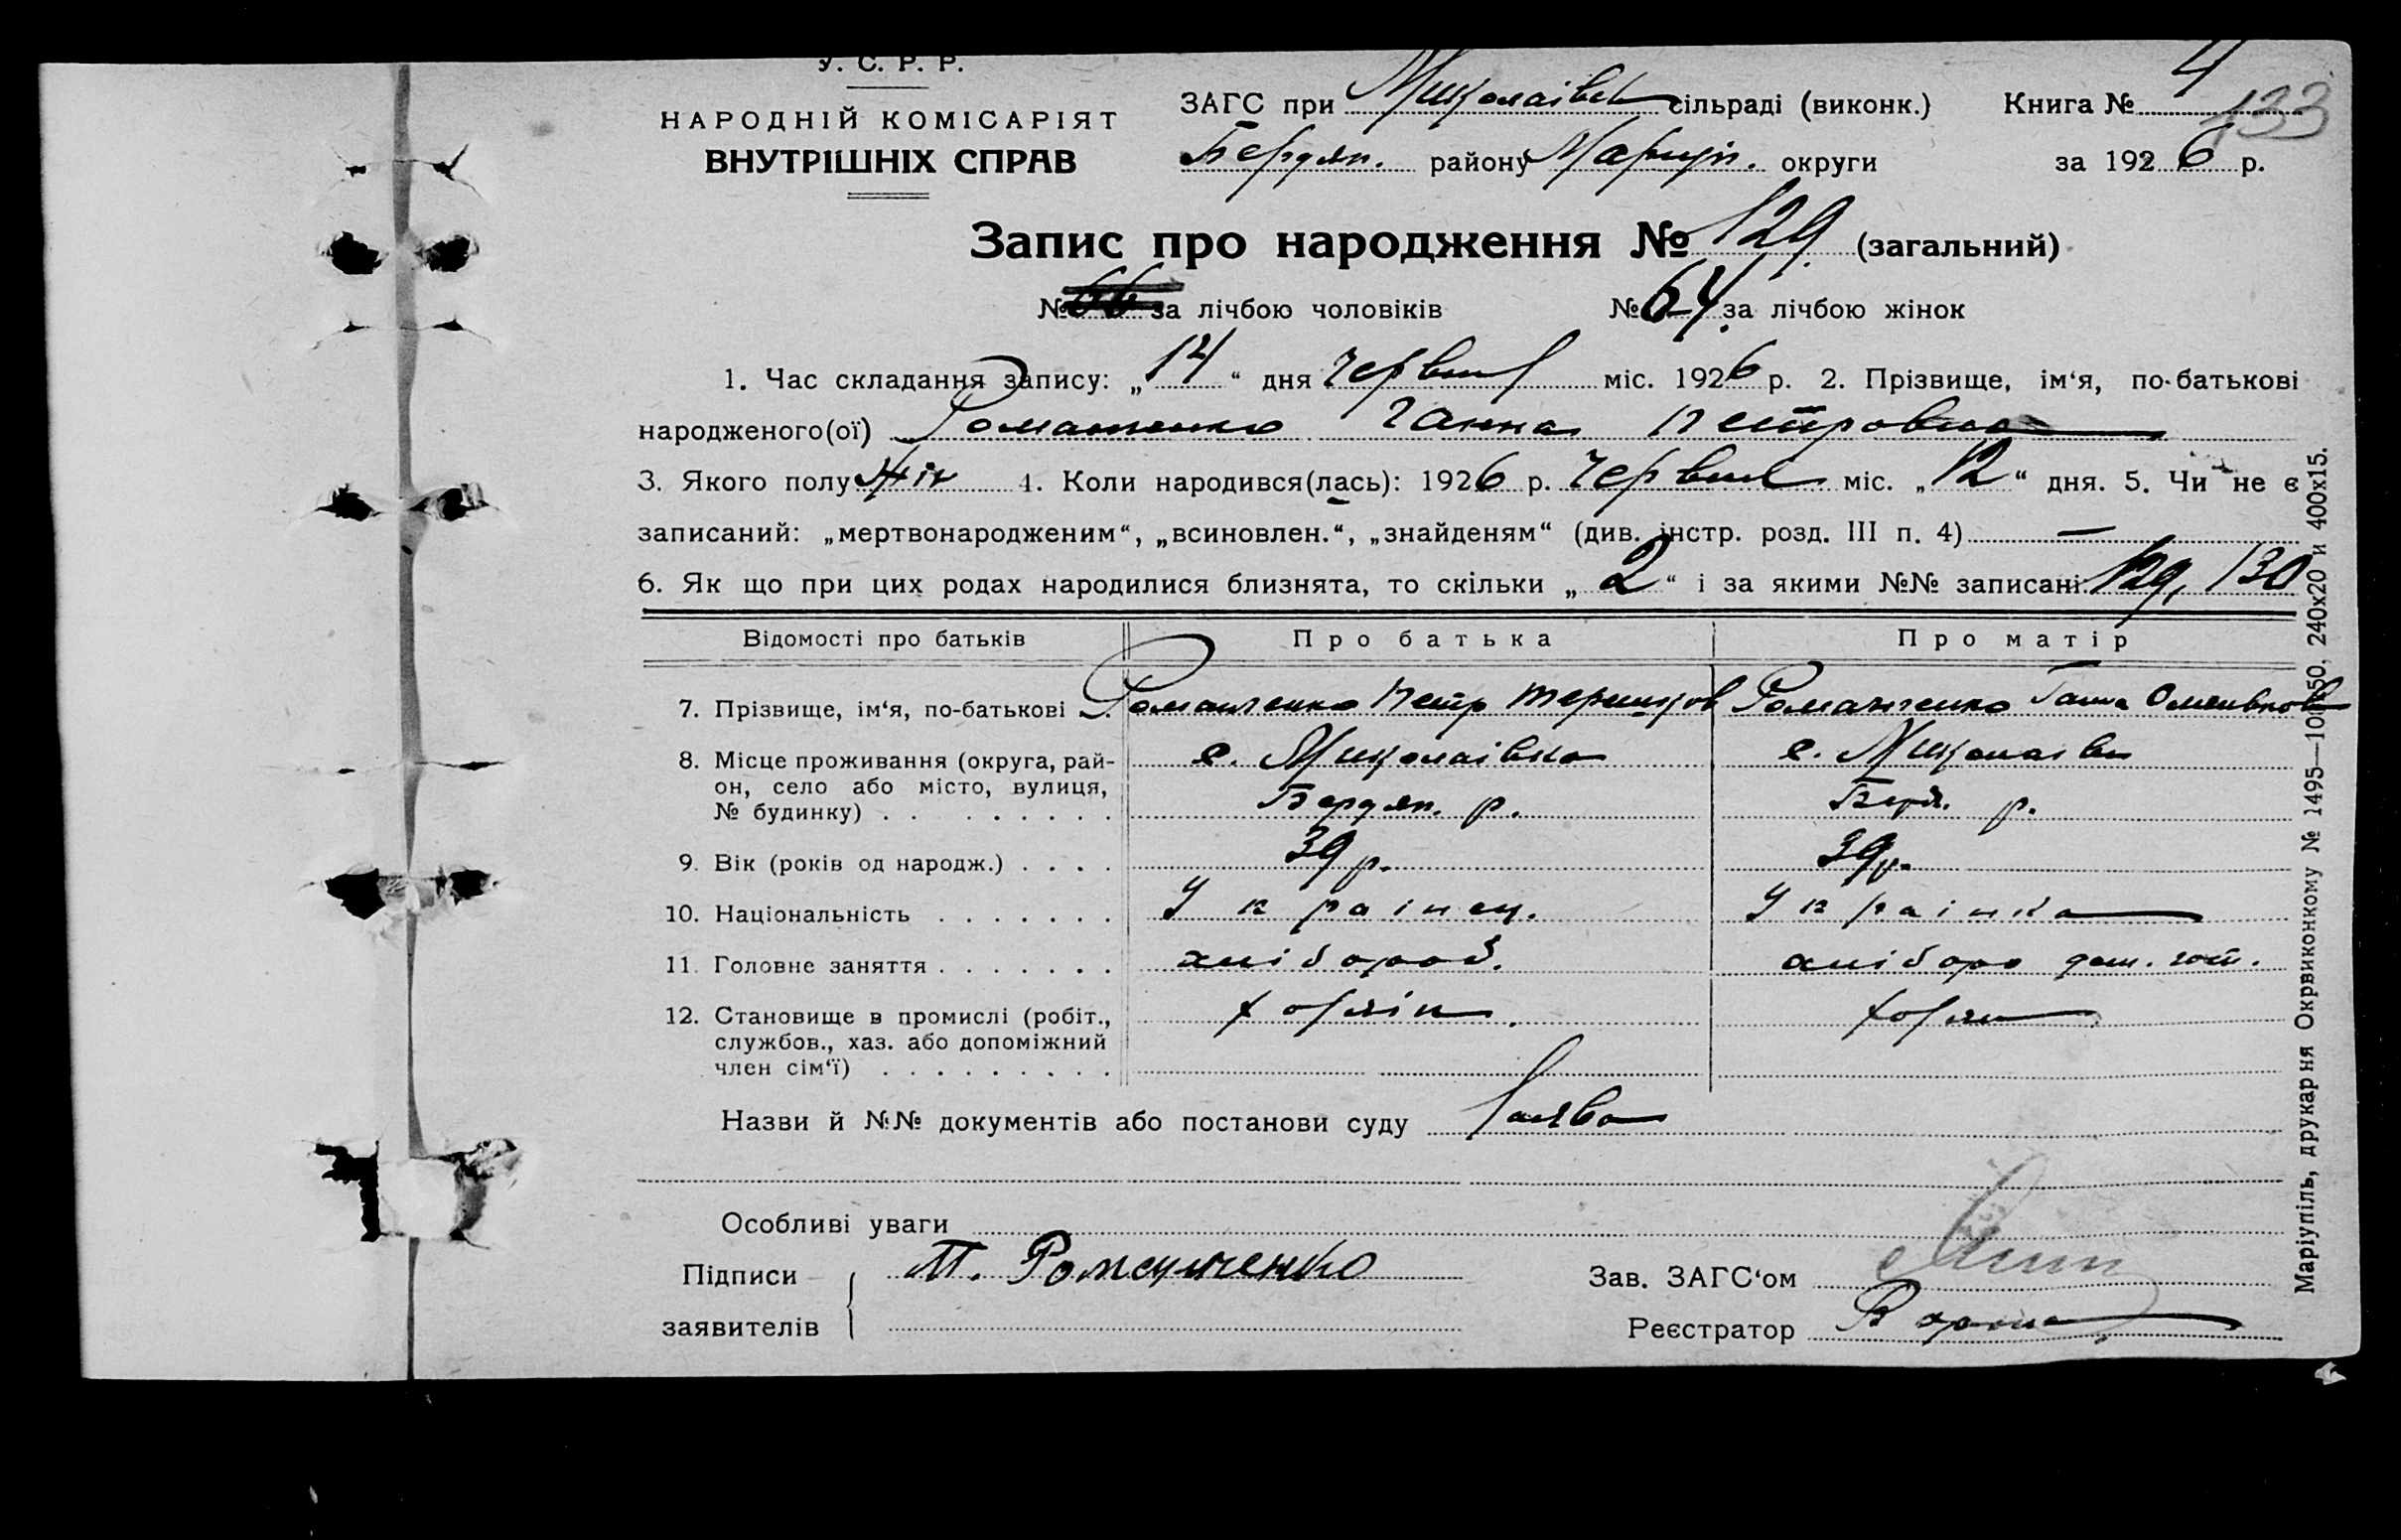 У. С. Р. Р.
НАРОДНІЙ КОМІСАРІЯТ
ВНУТРІШНІХ СПРАВ
ЗАГС при Миколаівск сільраді (виконк.) Книга № 4
133
Бердян. району Маріуп. округи за 1926 р.
Запис про народження № 129 (загальний)
№ 66 за лічбою чоловіків № 64 за лічбою жінок
1. Час складання запису: „14“ дня Червня міс. 1926 р. 2. Прізвище, ім‘я, по-батькові
народженого(ої) Романченко Ганна Петровна
3. Якого полу Жін 4. Коли народився(лась): 1926 р. Червня міс. „12“ дня. 5. Чи не є
записаний: „мертвонародженим“, „всиновлен.“, „знайденям“ (див. інстр. розд. III п. 4) —
6. Як що при цих родах народилися близнята, то скільки „2“ і за якими №№ записані 129, 130
Відомості про батьків Про батька Про матір
7. Прізвище, ім‘я, по-батькові . . Романченко Петр Романченко Ганна
8. Місце проживання (округа, рай-
он, село або місто, вулиця,
№ будинку) . . . . . . . .
с. Миколаівка с. Миколаівк
Бердян. р. Берд. р.
9. Вік (років од народж.) . . . . 39 р. 39 р.
10. Національність . . . . . . . Украінец. Украінка
11. Головне заняття . . . . . . . хлібороб. хлібороб дом. гост.
12. Становище в промислі (робіт.,
службов., хаз. або допоміжний
член сім‘ї) . . . . . . . . .
Назви й №№ документів або постанови суду Заява
Особливі уваги
Підписи П. Романченко Зав. ЗАГС‘ом
заявителів Реєстратор
Маріупіль, друкарня Окрвиконкому № 1495—10 50. 240x20 и 400x15.